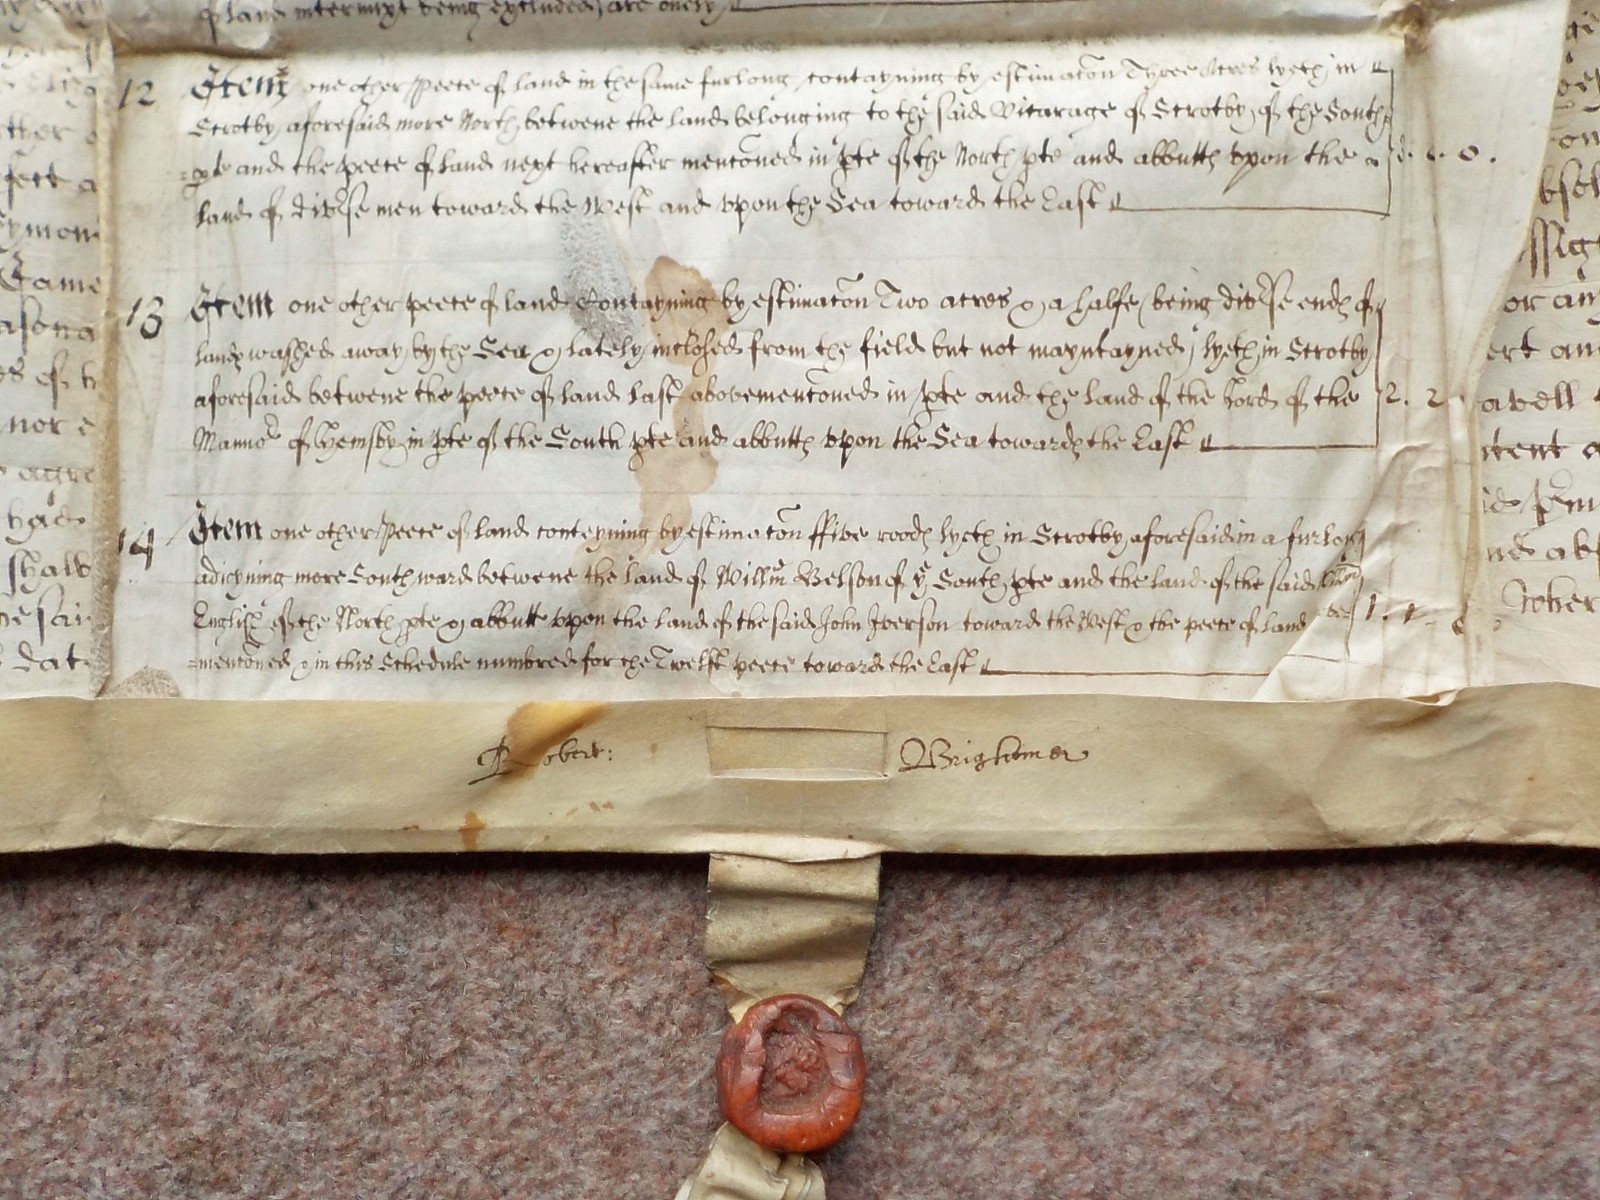 of land intermixt being excluded) are onely
12 Item one other peece of land in the same furlong contayning by estimacon Three Acres lyeth in
Scrotby aforesaid more North betwene the land belonging to the said Vicarage of Scrotby of the South
pte and the peece of land next hereafter menconed in pte of the North pte and abbutth vpon the
land of divse men toward the West and vpon the Sea toward the East
13 Item one other peece of land Contayning by estimacon Two acres & a halfe (being divse endes of
landes washed away by the Sea & lately inclosed from the field but not mayntayned) lyeth in Scrotby
aforesaid betwene the peece of land last abovemenconed in pte and the land of the Lord of the 2. 2
Mannor of Hemsby in pte of the South pte and abbutth vpon the Sea towardes the East
14 Item one other peece of land conteyning by estimacon ffive roodes lyeth in Scrotby aforesaid in a furlong
adioyning more Southward betwene the land of Willm Belson of ye South pte and the land of the said
Englishe of the North pte & abbutt vpon the land of the said John Iverson toward the West & the peece of land 1. 1
menconed & in this Schedule numbred for the Twelft peece toward the East
Robert: Brightmer